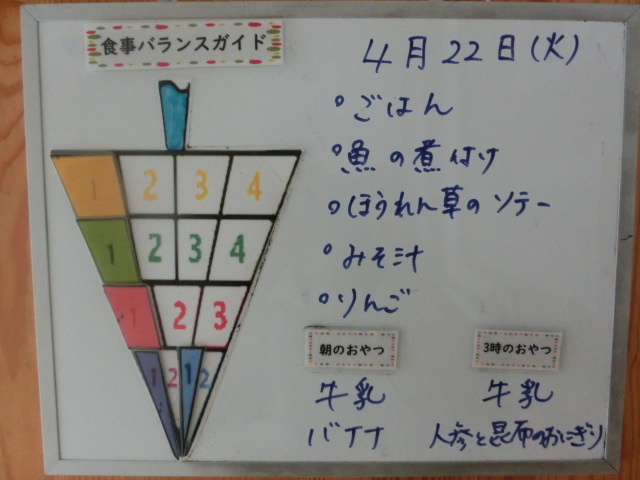 食事バランスガイド
4月22日(火)
。ごはん
。魚の煮付け
。ほうれん草のソテー
。みそ汁
。りんご
1 2 3 4
1 2 3 4
1 2 3
1 2 1 2
朝のおやつ
牛乳
バナナ
3時のおやつ
牛乳
人参と昆布のおにぎり